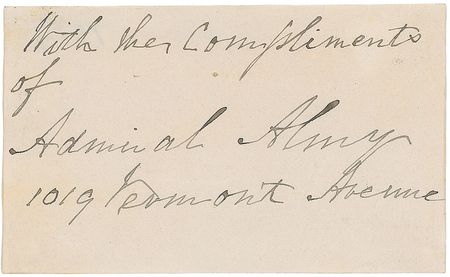 With the Compliments
of
Admiral Almy
1019 Vermont Avenue